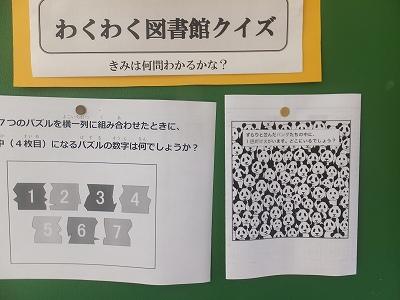 わくわく図書館クイズ
きみは何問わかるかな?
7つのパズルを横一列に組み合わせたときに、
中(4枚目)になるパズルの数字は何でしょうか?
1 2 3 4
5 6 7
ずらりと並んだパンダたちの中に、
1匹だけ
がいます。どこにいるでしょう?